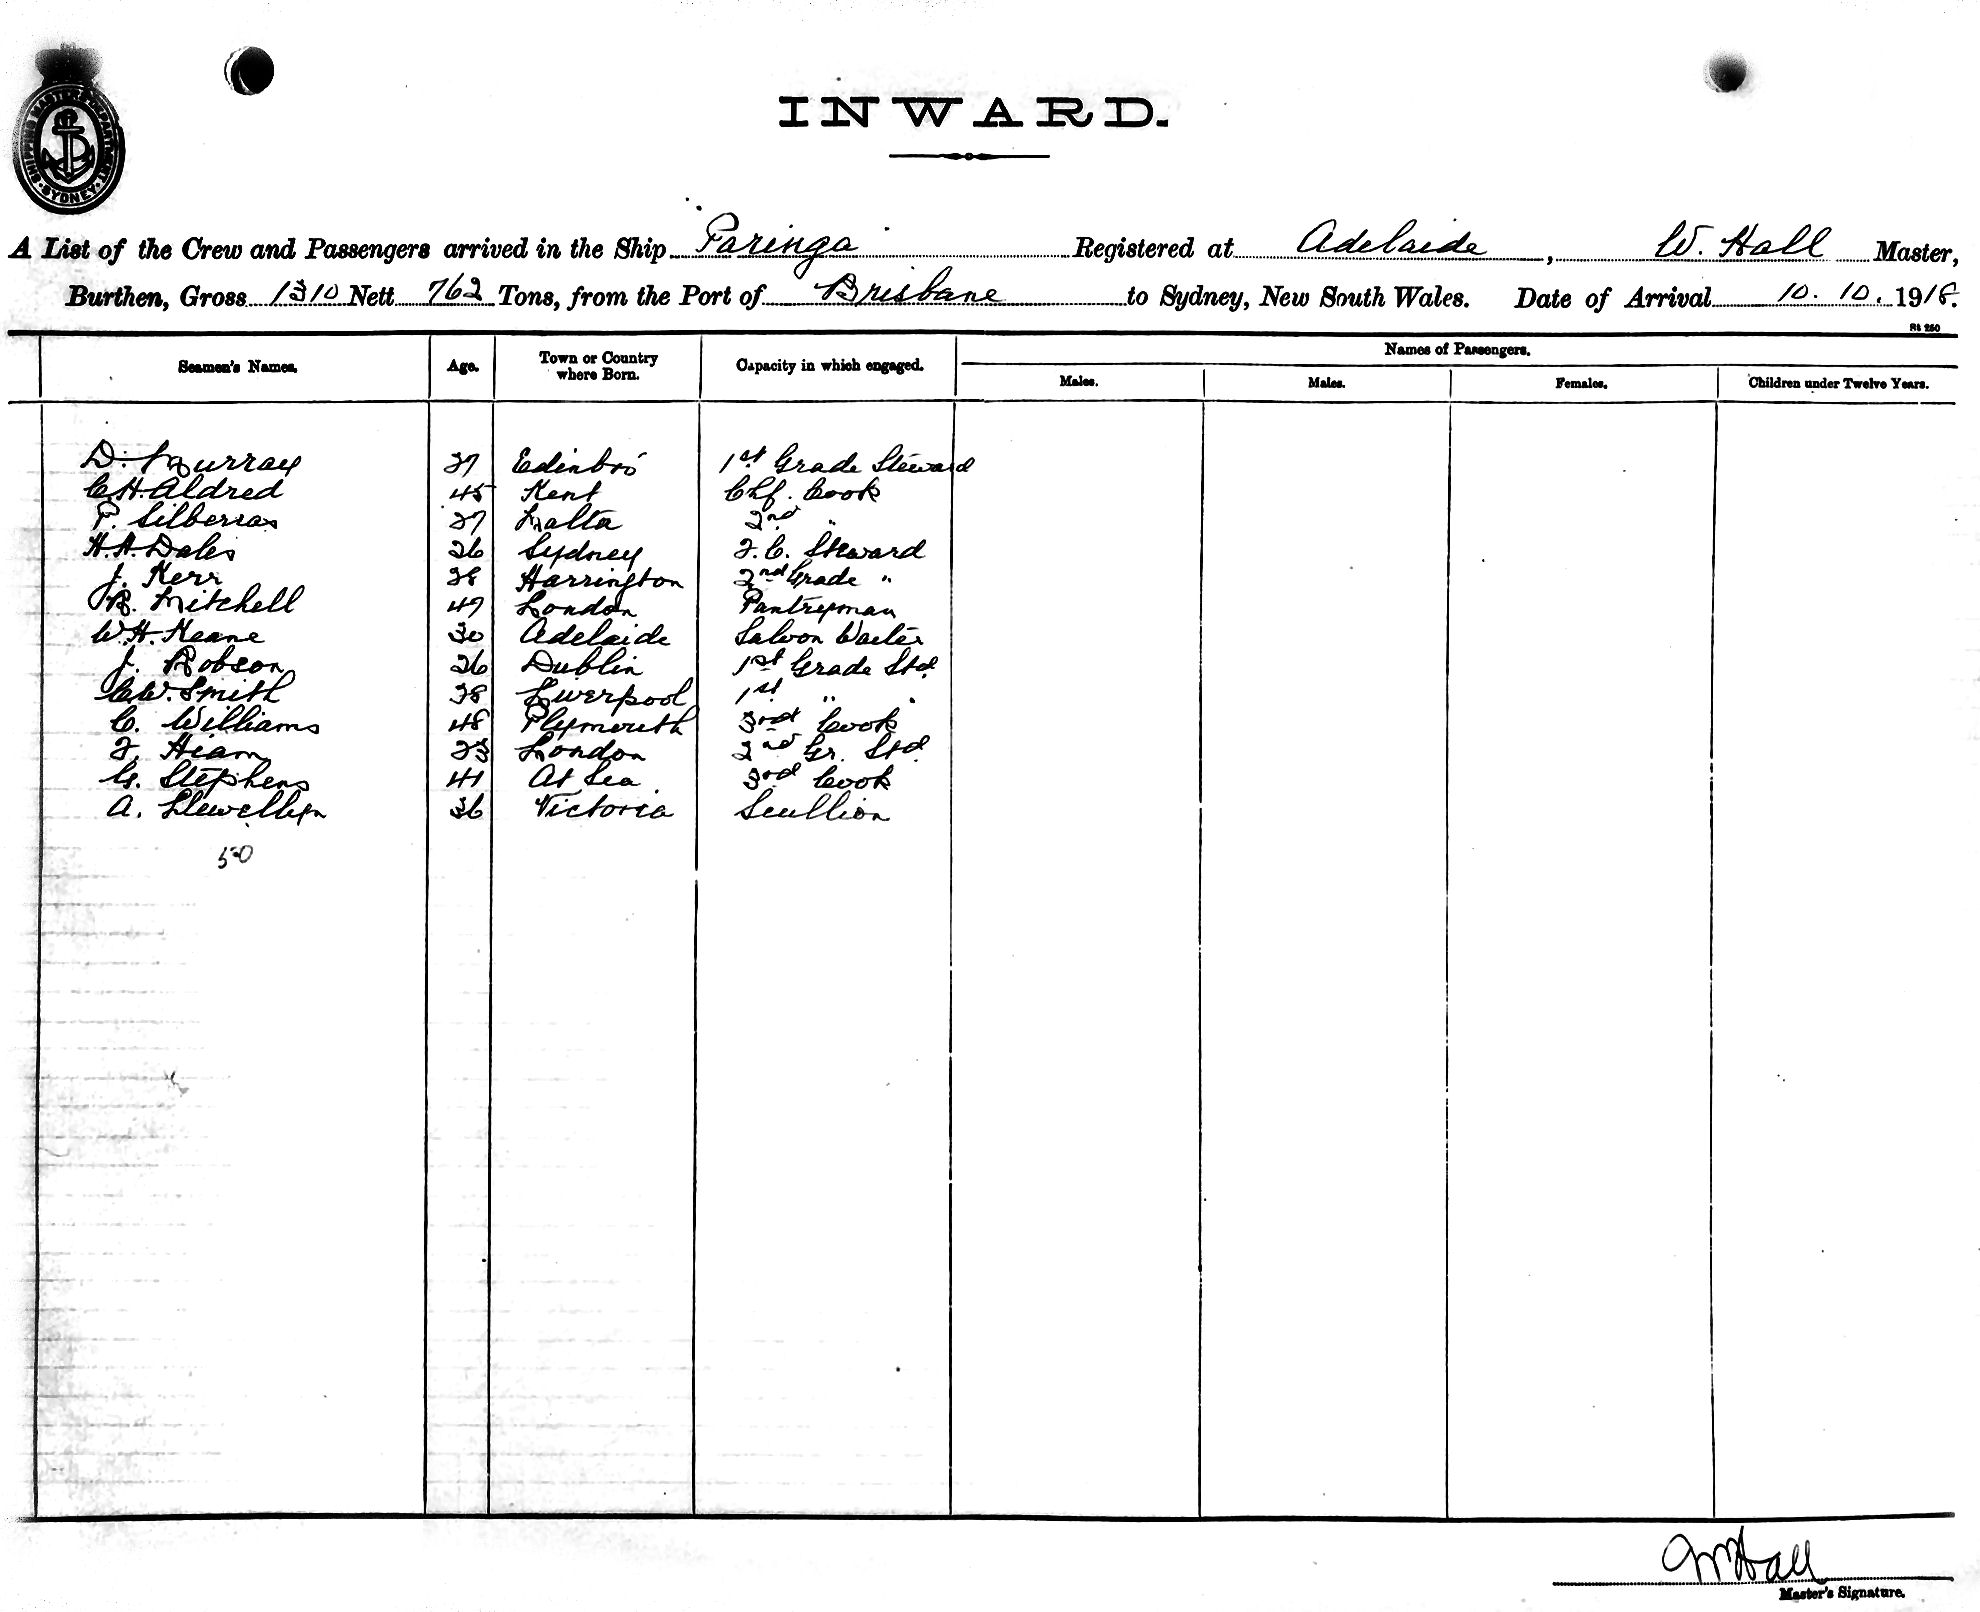 SHIPPING MASTERS DEPARTMENT. SYDNEY.
INWARD.
A List of the Crew and Passengers arrived in the Ship Paringa Registered at Adelaide, W. Hall Master,
Burthen, Gross 1310 Nett 762 Tons, from the Port of Brisbane to Sydney, New South Wales. Date of Arrival 10. 10. 1918.
Rs 250
Seamen's Names. Age. Town or Country where Born. Capacity in which engaged. Names of Passengers.
Males. Males. Females. Children under Twelve Years.
D. Murray 27 Edinbro' 1st Grade Steward
C.H. Aldred 45 Kent Chf. Cook
P. Silberras 27 Malta 2nd "
H.H. Dales 26 Sydney F.C. Steward
J. Kerr 28 Harrington 2nd Grade "
R. Mitchell 47 London Pantryman
W.H. Keane 30 Adelaide Saloon Waiter
J. Robson 26 Dublin 1st Grade Std.
C.W. Smith 38 Liverpool 1st " "
C. Williams 48 Plymouth 3rd Cook
F. Heam 23 London 2nd Gr. Std.
G. Stephens 41 At Sea 3rd Cook
A. Llewellyn 36 Victoria Scullion
50
W Hall
Master's Signature.